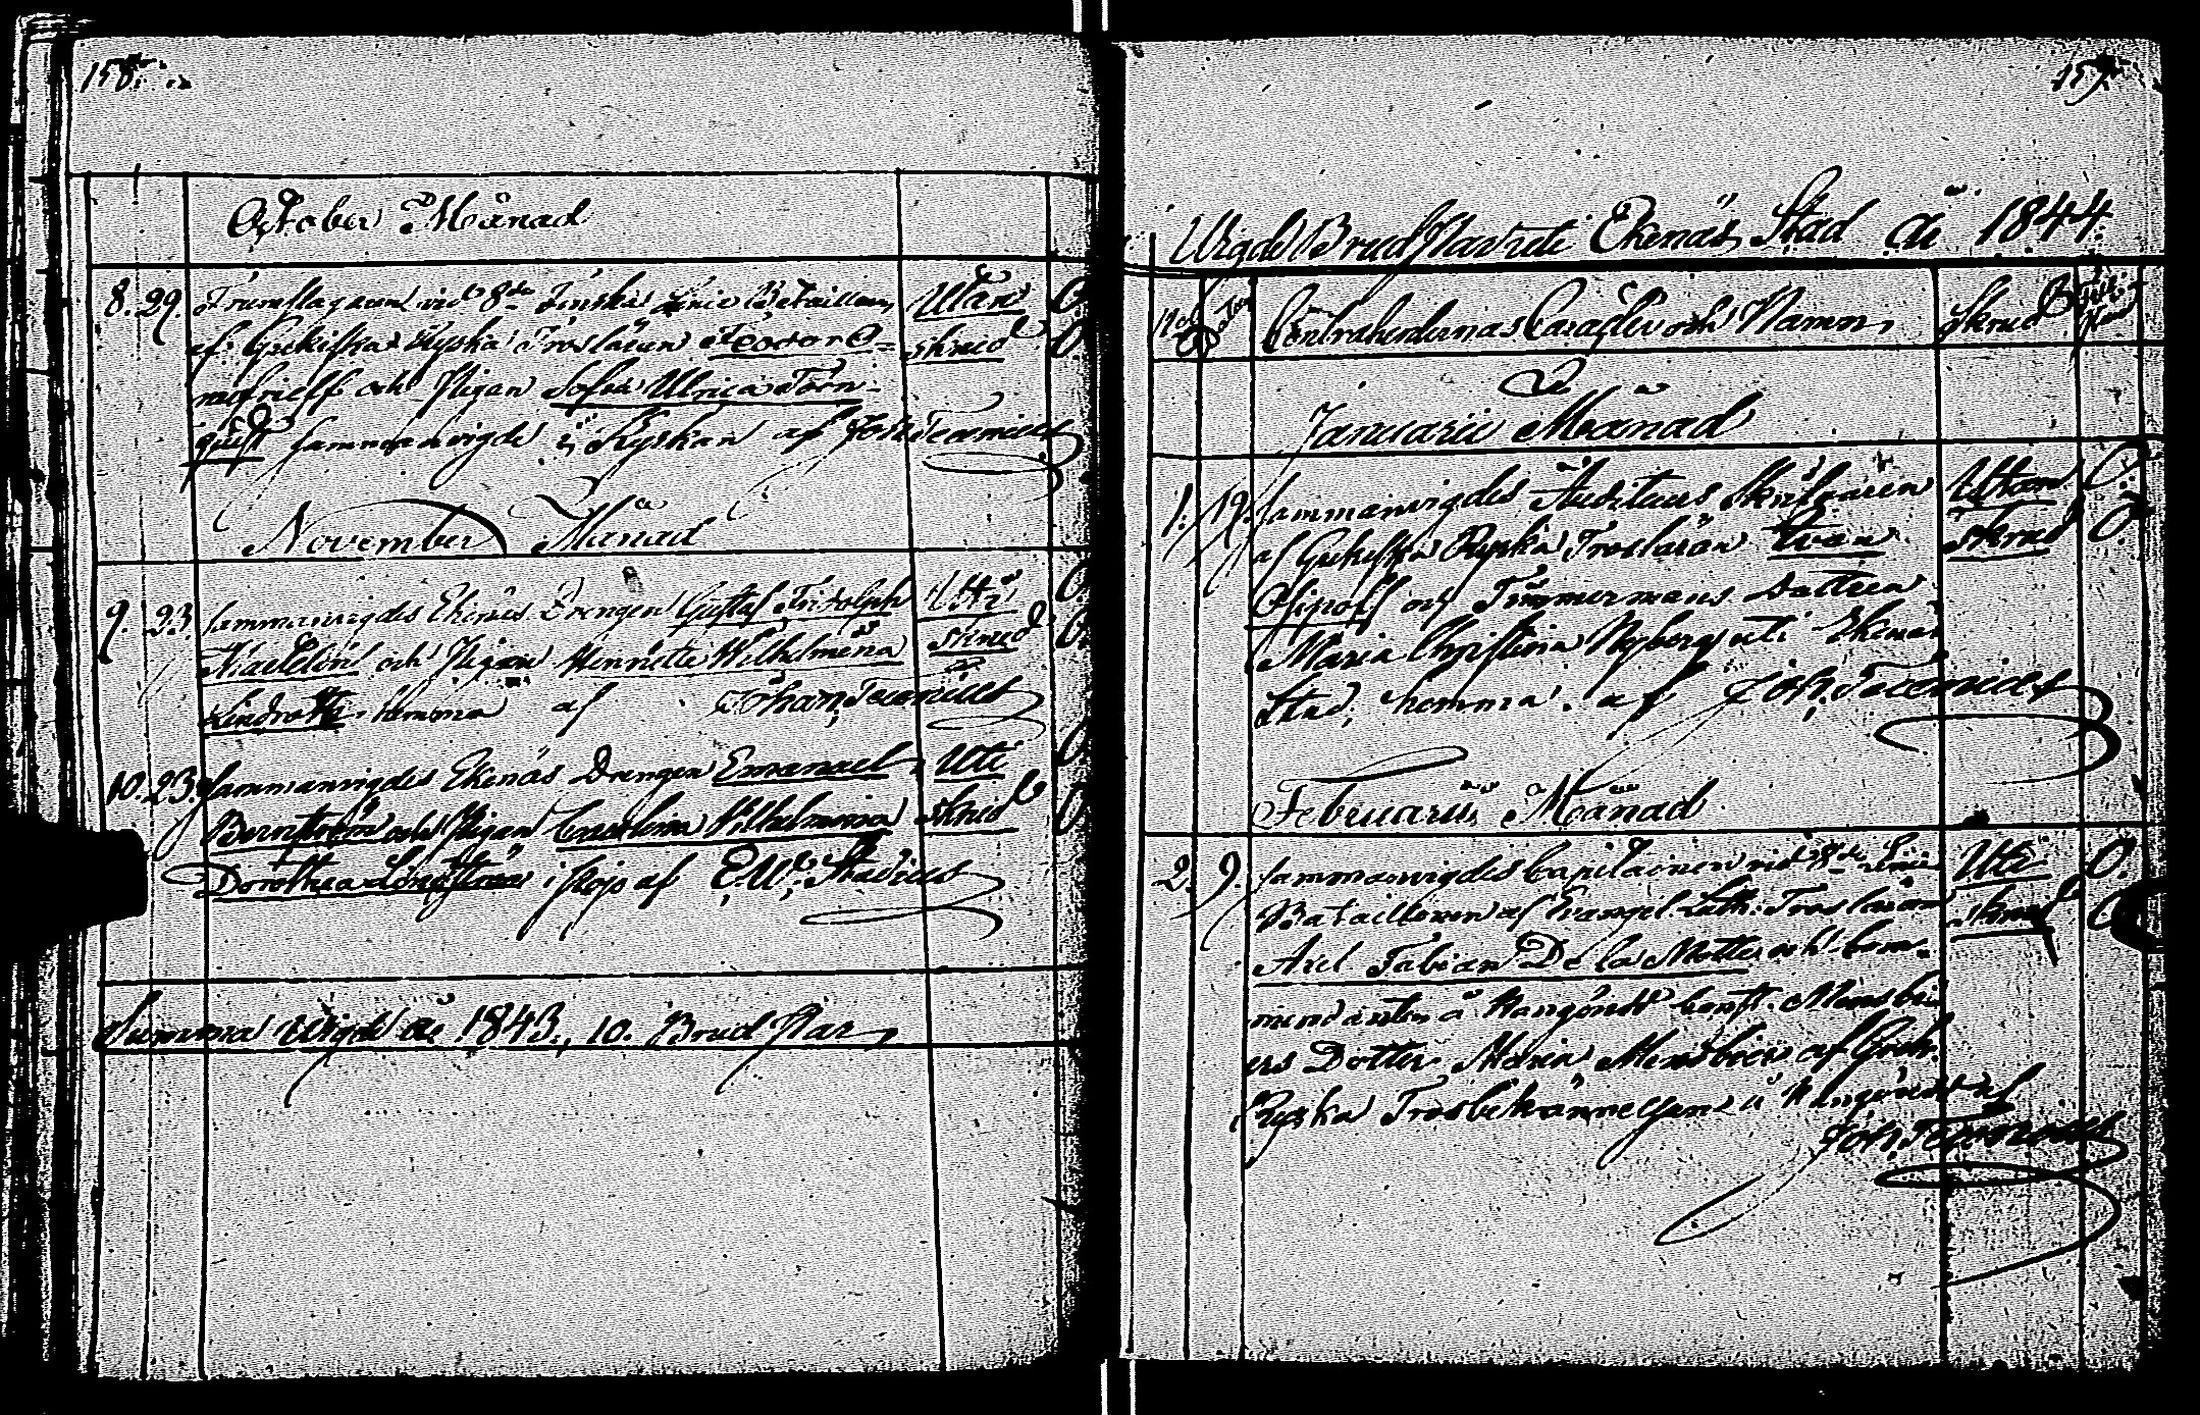 156.
October Månad
8. 29. Trumslagaren vid 8de Finska Linie Bataillon, Utan 0.
af Grekiska Ryska Trosläran Feodor O- skrud 0.
nofrieff och Pigan Sofia Ulrica Törn-
quist sammanvigde i Kyrkan af Joh: Tecnices
November Månad
9. 23. Sammanvigdes Ekenäs Drengen Gustaf Fridolph Uti 0.
och Pigan Henriette Wilhelmina skrud 0.
Lindroth, hemma af Johan Tecnices
10. 23. Sammanvigdes Ekenäs Drengen Emanuel Uti 0.
Berntholm och Pigan Carolina Vilhelmina skrud 0.
Dorothea Longström i skojs af E. W. Stadius
Summa Vigde år 1843, 10. Brud Par
157.
Vigde Brudpar uti Ekenäs Stad år 1844.
No Dato Contrahenternas Caracter och Namn, Skrud
Januarii Månad
1. 19. Sammanvigdes Auditeurs Skrifvaren Utan 0.
af Grekiska Ryska Trosläran Ivan skrud 0.
Osipoff och Timmermans dottren
Maria Christina Nyberg uti Ekenäs
Stad, hemma. af Joh: Tecnices
Februarii Månad
2. 9. Sammanvigdes Capitainen vid 8de Linie Uti 0.
Bataillonen af Evangel. Luth: Trosläran skrud 0.
Axel Fabian De la Motte och Com-
mendanten å Hangöudd
ers Dotter Maria af Grek.
Ryska Trosbekännelsen å Hangöudd af
Joh: Tecnices